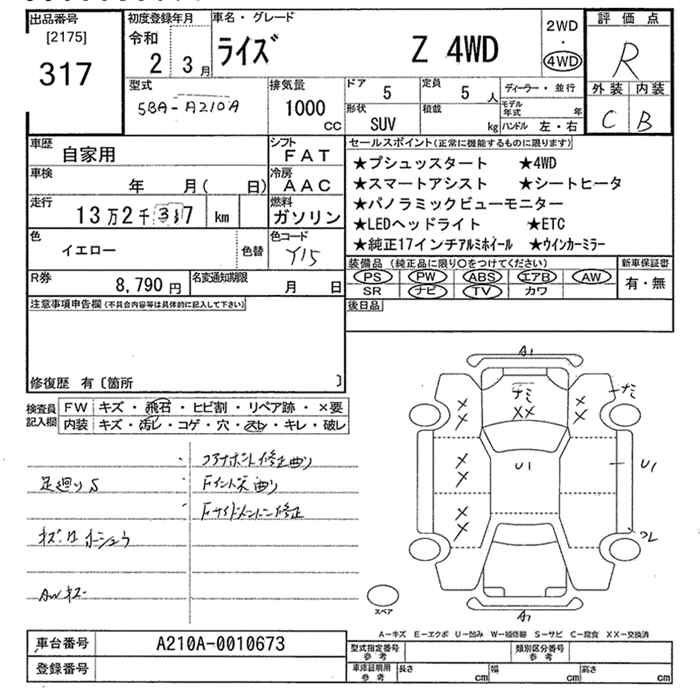 出品番号
[2175]
317
初度登録年月
令和
2 3月
車名・グレード
ライズ Z 4WD
2WD
・
4WD
評価点
R
外装 内装
C B
型式
5BA-A210A
排気量
1000
CC
ドア
5
定員
5 人
ディーラー・並行
形状
SUV
積載
kg
モデル年式 年
ハンドル 左・右
車歴
自家用
シフト
FAT
車検
年 月( 日)
冷房
AAC
走行
13万2千337 km
燃料
ガソリン
色
イエロー
色替
色コード
Y15
R券
8,790円
名変通知期限
月 日
セールスポイント(正常に機能するものに限ります)
★プシュッスタート ★4WD
★スマートアシスト ★シートヒータ
★パノラミックビューモニター
★LEDヘッドライト ★ETC
★純正17インチアルミホイール ★ウインカーミラー
装備品 (純正品に限り○をつけてください)
PS PW ABS エアB AW
SR ナビ TV カワ
新車保証書
有・無
後日品
注意事項申告欄(不具合内容等は具体的に記入して下さい)
修復歴 有〔箇所 〕
検査員記入欄
FW キズ・飛石・ヒビ割・リペア跡・×要
内装 キズ・汚レ・コゲ・穴・スレ・キレ・破レ
コアサポート修正曲り
足廻りS
Fインナー曲り
Fサイドメンバー修正
AWキズ
A1
ナミ
XX
ナミ
XX
XX
XX
XX
U1
U1
A1
スペア
A-キズ E-エクボ U-凹み W-補修跡 S-サビ C-腐食 XX-交換済
車台番号
A210A-0010673
登録番号
型式指定番号
参考
類別区分番号
参考
車庫証明用
参考
長さ cm
幅 cm
高さ cm